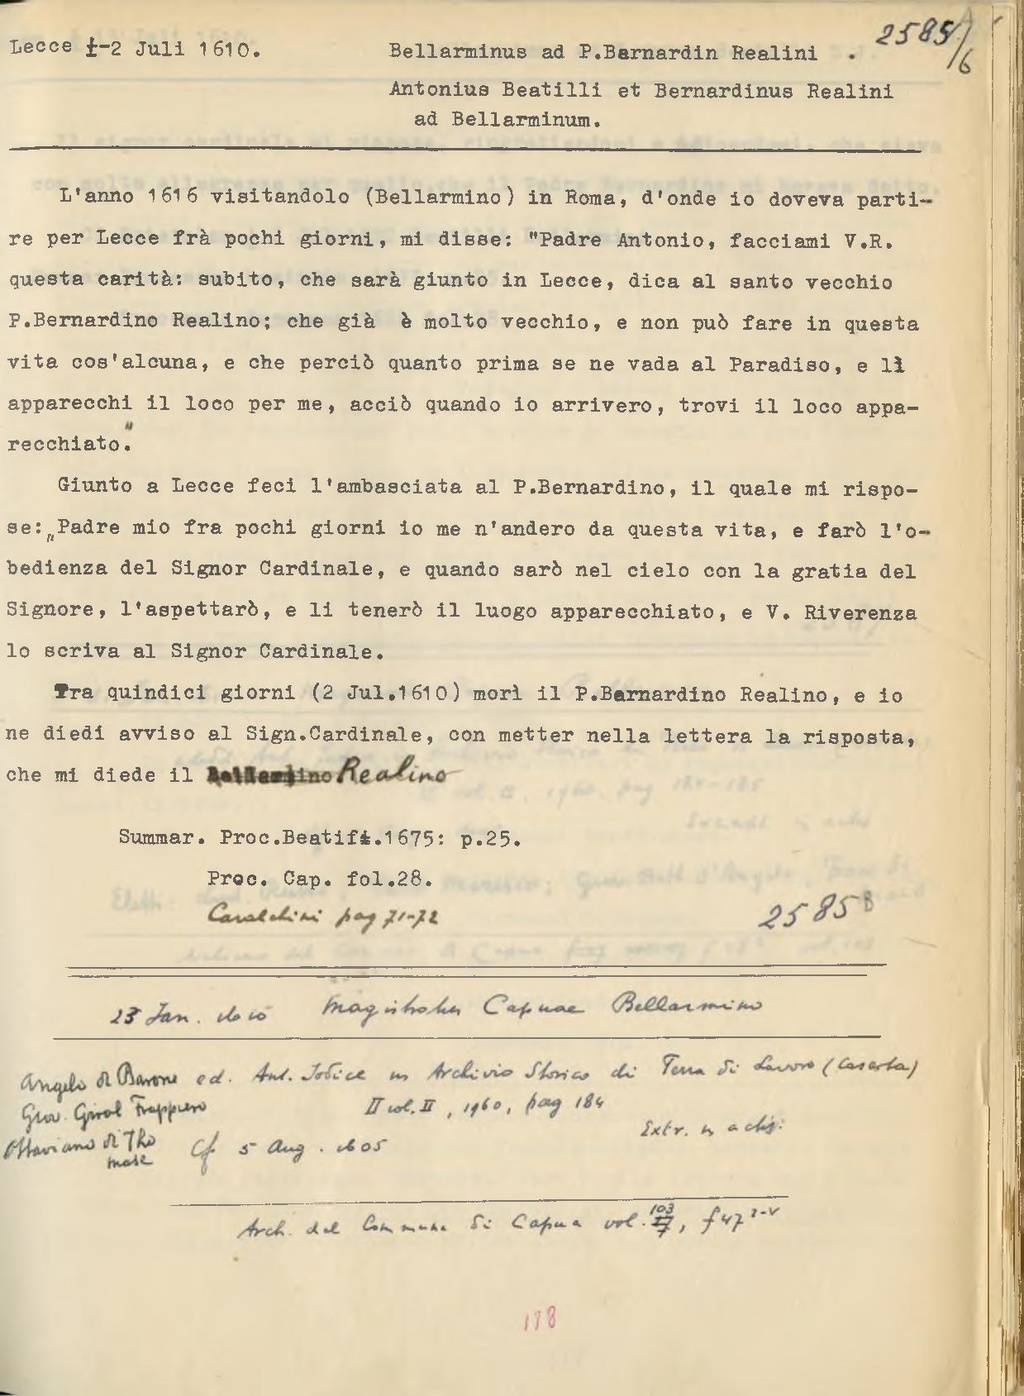 Lecce ±-2 Juli 1610.
Bellarminus ad P.Barnardin Realini .
2585/6
Antonius Beatilli et Bernardinus Realini
ad Bellarminum.
L'anno 1616 visitandolo (Bellarmino) in Roma, d'onde io doveva parti-
re per Lecce frà pochi giorni, mi disse: "Padre Antonio, facciami V.R.
questa carità: subito, che sarà giunto in Lecce, dica al santo vecchio
P.Bernardino Realino; che già è molto vecchio, e non può fare in questa
vita cos'alcuna, e che perciò quanto prima se ne vada al Paradiso, e lì
apparecchi il loco per me, acciò quando io arrivero, trovi il loco appa-
recchiato."
Giunto a Lecce feci l'ambasciata al P.Bernardino, il quale mi rispo-
se:„Padre mio fra pochi giorni io me n'andero da questa vita, e farò l'o-
bedienza del Signor Cardinale, e quando sarò nel cielo con la gratia del
Signore, l'aspettarò, e li tenerò il luogo apparecchiato, e V. Riverenza
lo scriva al Signor Cardinale.
Tra quindici giorni (2 Jul.1610) morì il P.Barnardino Realino, e io
ne diedi avviso al Sign.Cardinale, con metter nella lettera la risposta,
che mi diede il Realino
Summar. Proc.Beatifi.1675: p.25.
Proc. Cap. fol.28.
pag 71-72
2585 B
23 Jan. Capuae Bellarmino
Angelo di Barone ed. Ant. Jodice in Archivio Storico di Terra di Lavoro (Caserta)
Giov. Girol Frappiero II vol. II, 1960, pag 184
Extr. in actis:
Ottaviano di Tho
mase Cf 5 Aug. 1605
Arch. del Commune di Capua vol. 103, f 47
178